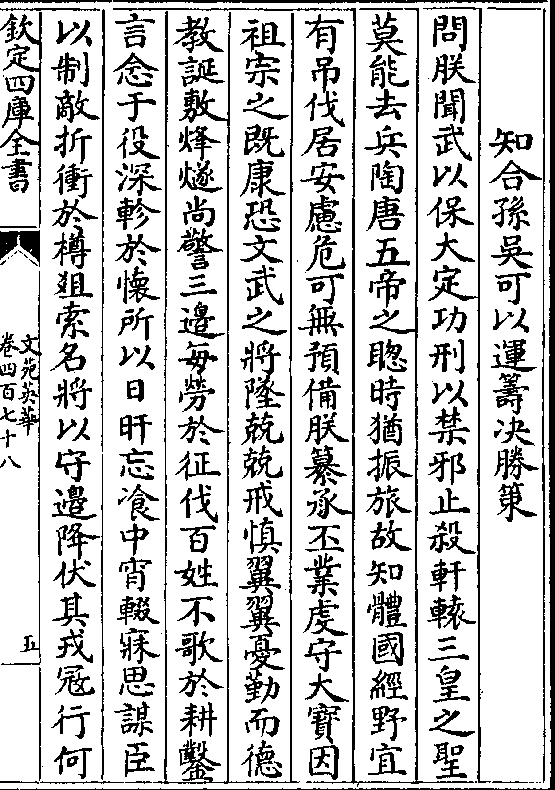 知合孫吳可以運籌决勝策
問朕聞武以保大定功刑以禁邪止殺軒轅三皇之聖
莫能去兵陶唐五帝之聦時猶振旅故知體國經野宜
有吊伐居安慮危可無預備朕纂承丕業虔守大寶因
祖宗之既康恐文武之將墜兢兢戒慎翼翼憂勤而德
教誕敷烽燧尚警三邉每勞於征伐百姓不歌於耕鑿
言念于役深軫於懷所以日旰忘飡中宵輟寐思謀臣
以制敵折衝於樽俎索名將以守邉降伏其戎冦行何
欽定四庫全書
文苑英華
卷四百七十八
五